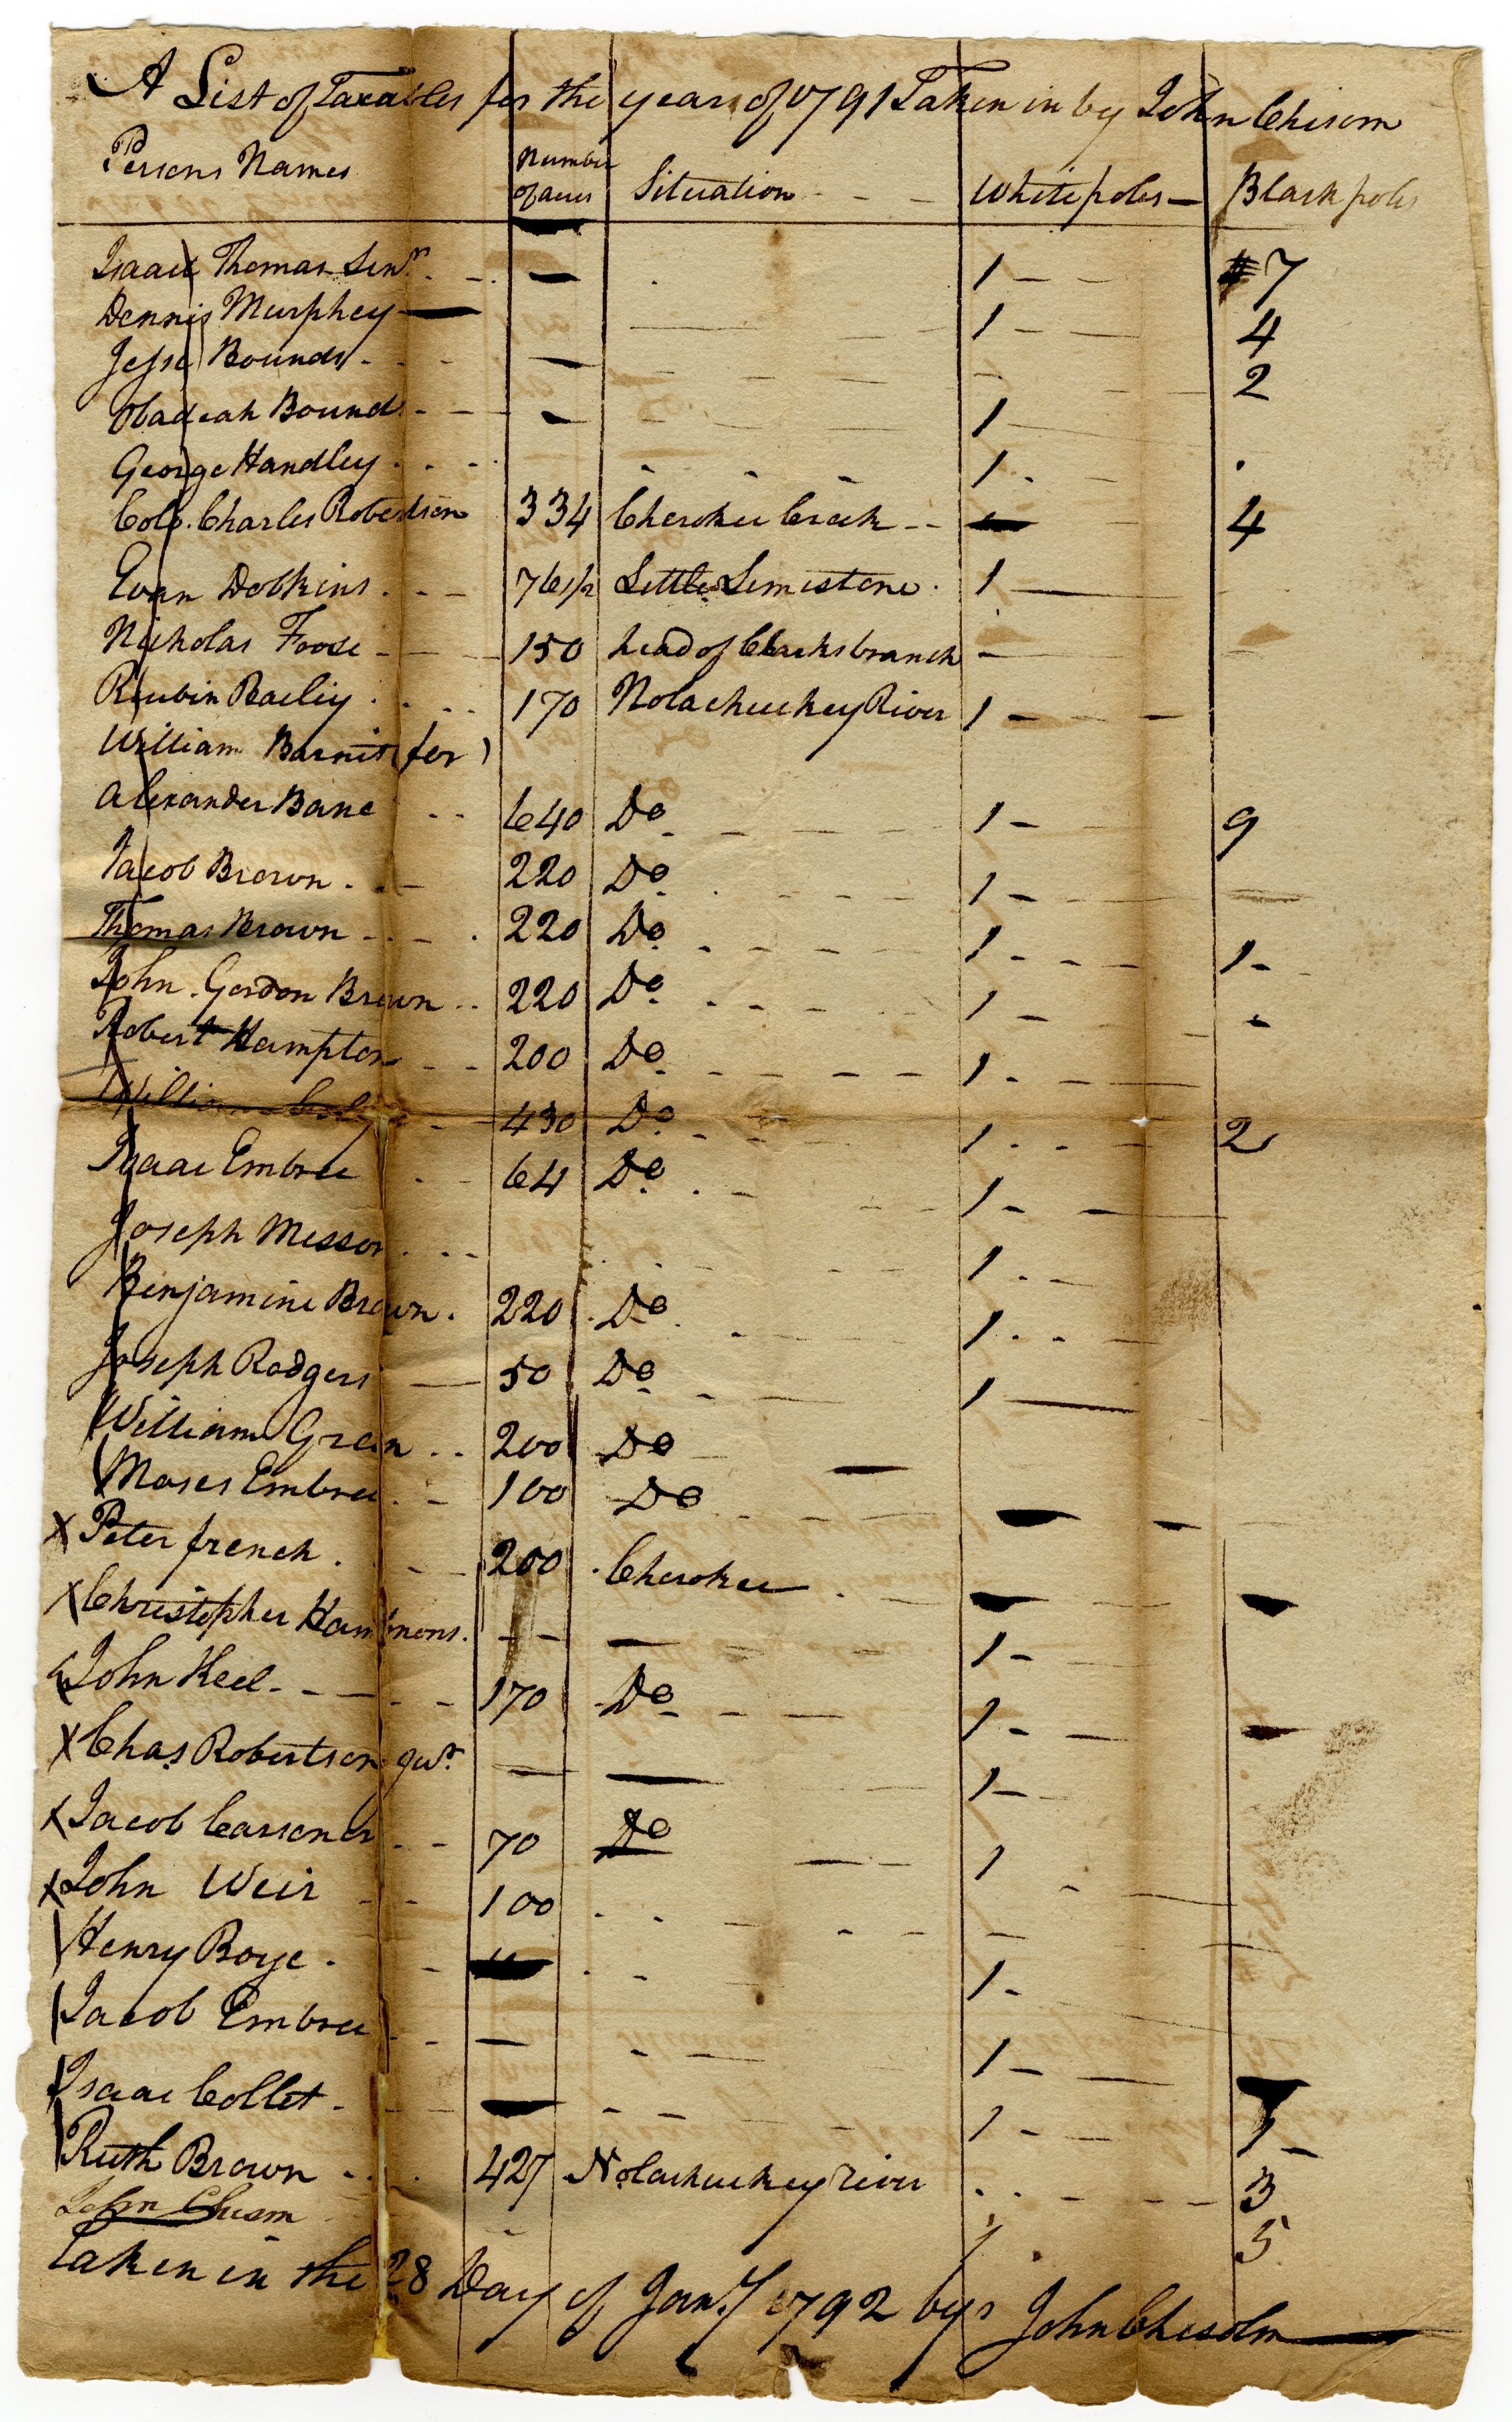 A List of Taxables for the year of 1791 Taken in by John Chisom
Persons Names Number of acres Situation - - - White poles — Black poles
Isaack Thomas Senr. - - — 1 - - 7
Dennis Murphey — 1 - - 4
Jesse Bounds - - - — 2
Obadeah Bounds - - - 1
George Handley - - - 1 -
Colo. Charles Robertson 334 Cherokee Creek - - — 4
Evan Dobkins - - - 76 1/2 Little Limestone 1 —
Nicholas Foose - - - 150 head of Clarks branch -
Reubin Bailiy - - - 170 Nolachuckey River 1 - - -
William Barnit (for)
Alexander Bane - - 640 Do 1 - 9
Jacob Brown - - - 220 Do 1 - -
Thomas Brown - - - 220 Do 1 - - - 1 -
John Gordon Brown - - 220 Do 1 -
Robert Hampton - - 200 Do 1 - -
William - 430 Do 1 - - - 2
Isaac Embree - - 64 Do 1 - -
Joseph Messor - - - 1 - -
Benjamine Brown - 220 Do 1 - - -
Joseph Rodgers — 50 Do 1 —
William Green - - 200 Do —
Moses Embree - - 100 Do - - — -
X Peter french - - - 200 Cherokee - — —
X Christopher Hammons - - - — 1 -
X John Keel - - - - - 170 Do - - 1 - - —
X Chas Robertson jur. — — 1 -
X Jacob Carsoner - - 70 Do — - 1
X John Weir - - 100 - -
Henry Boye - - — - - 1 -
Jacob Embree - - — - - 1 - -
Isaac Collet - - — - - 1 - - 1 -
Ruth Brown - - - 427 Nolachuckey river - - - - 3
John Chisom 1 5
Taken in the 28 Day of Jany 1792 by John Chisolm